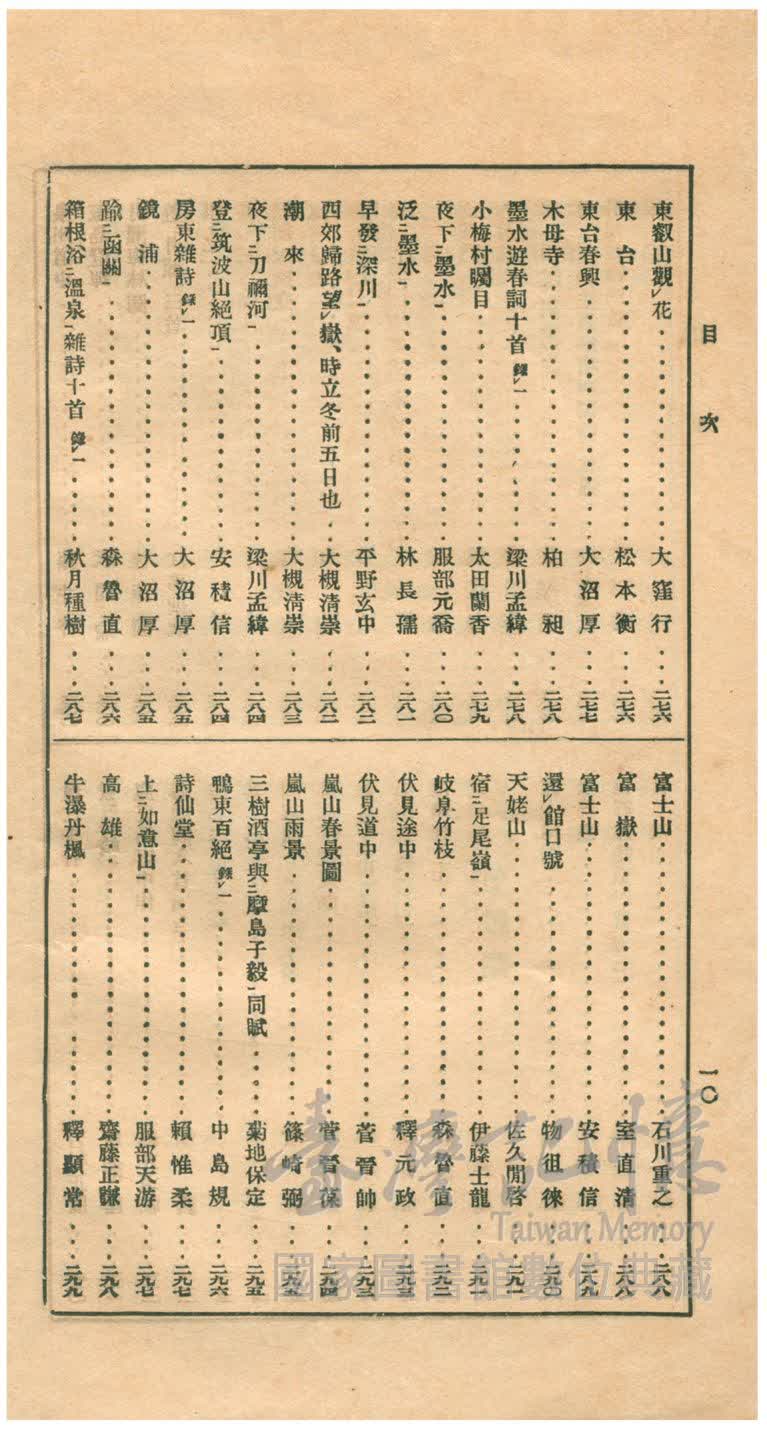 目次
一〇
東叡山觀レ花……大窪行……二七六
東台……松本衡……二七六
東台春興……大沼厚……二七七
木母寺……柏昶……二七八
墨水遊春詞十首 錄レ一……梁川孟緯……二七八
小梅村矚目……太田蘭香……二七九
夜下二墨水一……服部元喬……二八〇
泛二墨水一……林長孺……二八一
早發二深川一……平野玄中……二八二
西郊歸路望レ嶽、時立冬前五日也……大槻淸崇……二八二
潮來……大槻淸崇……二八三
夜下二刀禰河一……梁川孟緯……二八四
登二筑波山絕頂一……安積信……二八四
房東雜詩 錄レ一……大沼厚……二八五
鏡浦……大沼厚……二八五
踰二函關一……森魯直……二八六
箱根浴二溫泉一雜詩十首 錄レ一……秋月種樹……二八七
富士山……石川重之……二八八
富嶽……室直淸……二八八
富士山……安積信……二八九
還レ館口號……物徂徠……二九〇
天姥山……佐久間啓……二九一
宿二足尾嶺一……伊藤士龍……二九一
岐阜竹枝……森魯直……二九二
伏見途中……釋元政……二九三
伏見道中……菅晉帥……二九三
嵐山春景圖……菅晉葆……二九四
嵐山雨景……篠崎弼……二九五
三樹酒亭與二摩島子毅一同賦……菊地保定……二九五
鴨東百絕 錄レ一……中島規……二九六
詩仙堂……賴惟柔……二九七
上二如意山一……服部天游……二九七
高雄……齋藤正謙……二九八
牛瀑丹楓……釋顯常……二九九
臺灣記憶
Taiwan Memory
國家圖書館數位典藏